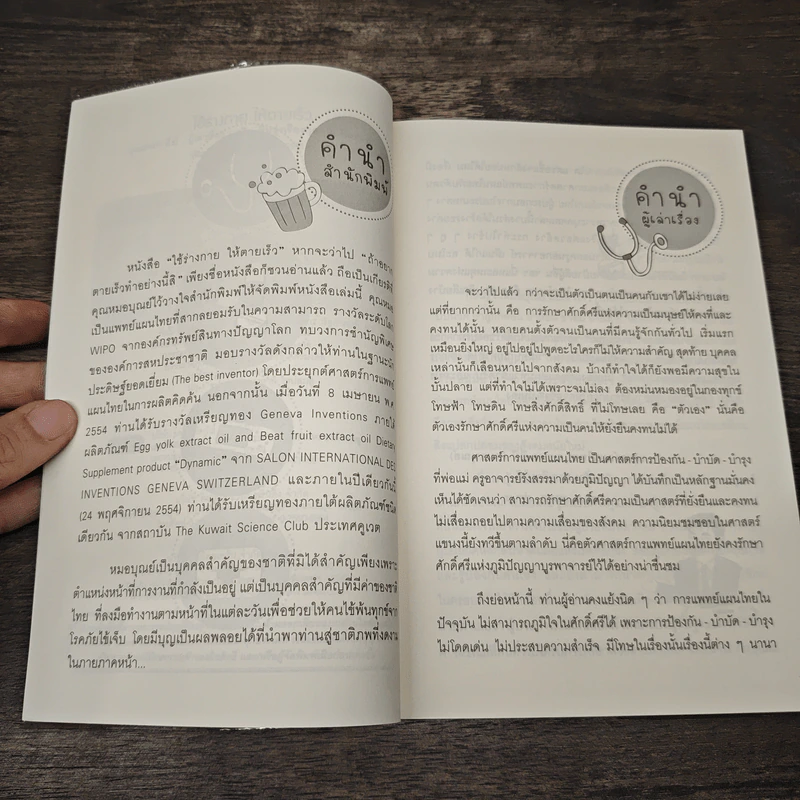 คำนำ
สำนักพิมพ์
หนังสือ "ใช้ร่างกาย ให้ตายเร็ว" หากจะว่าไป "ถ้าอยาก
ตายเร็วทำอย่างนี้สิ" เพียงชื่อหนังสือก็ชวนอ่านแล้ว ถือเป็นเกียรติที่
คุณหมอบุณย์ไว้วางใจสำนักพิมพ์ให้จัดพิมพ์หนังสือเล่มนี้ คุณหมอ
เป็นแพทย์แผนไทยที่สากลยอมรับในความสามารถ รางวัลระดับโลก
WIPO จากองค์กรทรัพย์สินทางปัญญาโลก ทบวงการชำนัญพิเศษ
ขององค์การสหประชาชาติ มอบรางวัลดังกล่าวให้ท่านในฐานะนัก
ประดิษฐ์ยอดเยี่ยม (The best inventor) โดยประยุกต์ศาสตร์การแพทย์
แผนไทยในการผลิตคิดค้น นอกจากนั้น เมื่อวันที่ 8 เมษายน พ.ศ.
2554 ท่านได้รับรางวัลเหรียญทอง Geneva Inventions ภายใต้
ผลิตภัณฑ์ Egg yolk extract oil and Beat fruit extract oil Dietary
Supplement product "Dynamic" จาก SALON INTERNATIONAL DES
INVENTIONS GENEVA SWITZERLAND และภายในปีเดียวกันนี้
(24 พฤศจิกายน 2554) ท่านได้รับเหรียญทองภายใต้ผลิตภัณฑ์ชนิด
เดียวกัน จากสถาบัน The Kuwait Science Club ประเทศคูเวต
หมอบุณย์เป็นบุคคลสำคัญของชาติที่มิได้สำคัญเพียงเพราะ
ตำแหน่งหน้าที่การงานที่กำลังเป็นอยู่ แต่เป็นบุคคลสำคัญที่มีค่าของชาติ
ไทย ที่ลงมือทำงานตามหน้าที่ในแต่ละวันเพื่อช่วยให้คนไข้พ้นทุกข์จาก
โรคภัยไข้เจ็บ โดยมีบุญเป็นผลพลอยได้ที่นำพาท่านสู่ชาติภพที่งดงาม
ในภายภาคหน้า...
คำนำ
ผู้เล่าเรื่อง
จะว่าไปแล้ว กว่าจะเป็นตัวเป็นตนเป็นคนกับเขาได้ไม่ง่ายเลย
แต่ที่ยากกว่านั้น คือ การรักษาศักดิ์ศรีแห่งความเป็นมนุษย์ให้คงที่และ
คงทนได้นั้น หลายคนตั้งตัวจนเป็นคนที่มีคนรู้จักกันทั่วไป เริ่มแรก
เหมือนยิ่งใหญ่ อยู่ไปอยู่ไปพูดอะไรใครก็ไม่ให้ความสำคัญ สุดท้าย บุคคล
เหล่านั้นก็เลือนหายไปจากสังคม บ้างก็ทำใจได้ก็ยังพอมีความสุขใน
บั้นปลาย แต่ที่ทำใจไม่ได้เพราะจมไม่ลง ต้องหม่นหมองอยู่ในกองทุกข์
โทษฟ้า โทษดิน โทษสิ่งศักดิ์สิทธิ์ ที่ไม่โทษเลย คือ "ตัวเอง" นั่นคือ
ตัวเองรักษาศักดิ์ศรีแห่งความเป็นคนให้ยั่งยืนคงทนไม่ได้
ศาสตร์การแพทย์แผนไทย เป็นศาสตร์การป้องกัน - บำบัด - บำรุง
ที่พ่อแม่ ครูอาจารย์รังสรรมาด้วยภูมิปัญญา ได้บันทึกเป็นหลักฐานมั่นคง
เห็นได้ชัดเจนว่า สามารถรักษาศักดิ์ศรีความเป็นศาสตร์ที่ยั่งยืนและคงทน
ไม่เสื่อมถอยไปตามความเสื่อมของสังคม ความนิยมชมชอบในศาสตร์
แขนงนี้ยังทวีขึ้นตามลำดับ นี่คือตัวศาสตร์การแพทย์แผนไทยยังคงรักษา
ศักดิ์ศรีแห่งภูมิปัญญาบูรพาจารย์ไว้ได้อย่างน่าชื่นชม
ถึงย่อหน้านี้ ท่านผู้อ่านคงแย้งนิด ๆ ว่า การแพทย์แผนไทยใน
ปัจจุบัน ไม่สามารถภูมิใจในศักดิ์ศรีได้ เพราะการป้องกัน - บำบัด - บำรุง
ไม่โดดเด่น ไม่ประสบความสำเร็จ มีโทษในเรื่องนั้นเรื่องนี้ต่าง ๆ นานา